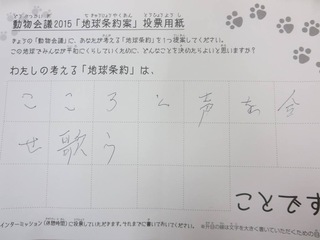 動物会議2015「地球条約案」投票用紙
きょうの「動物会議」に、あなたが考える「地球条約」を1つ提案してください。
この地球でみんなが平和にくらしていくために、どんなことを決めたらよいと思いますか?
わたしの考える「地球条約」は、
こころに声を合
せ歌う
インターミッション(休憩時間)に投票していただきます。それまでに書いておいてください。